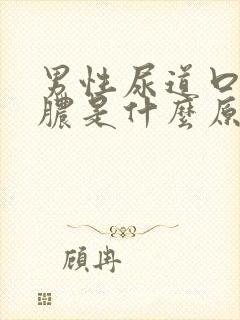 男性尿道口
膿是什麼原
顧冉